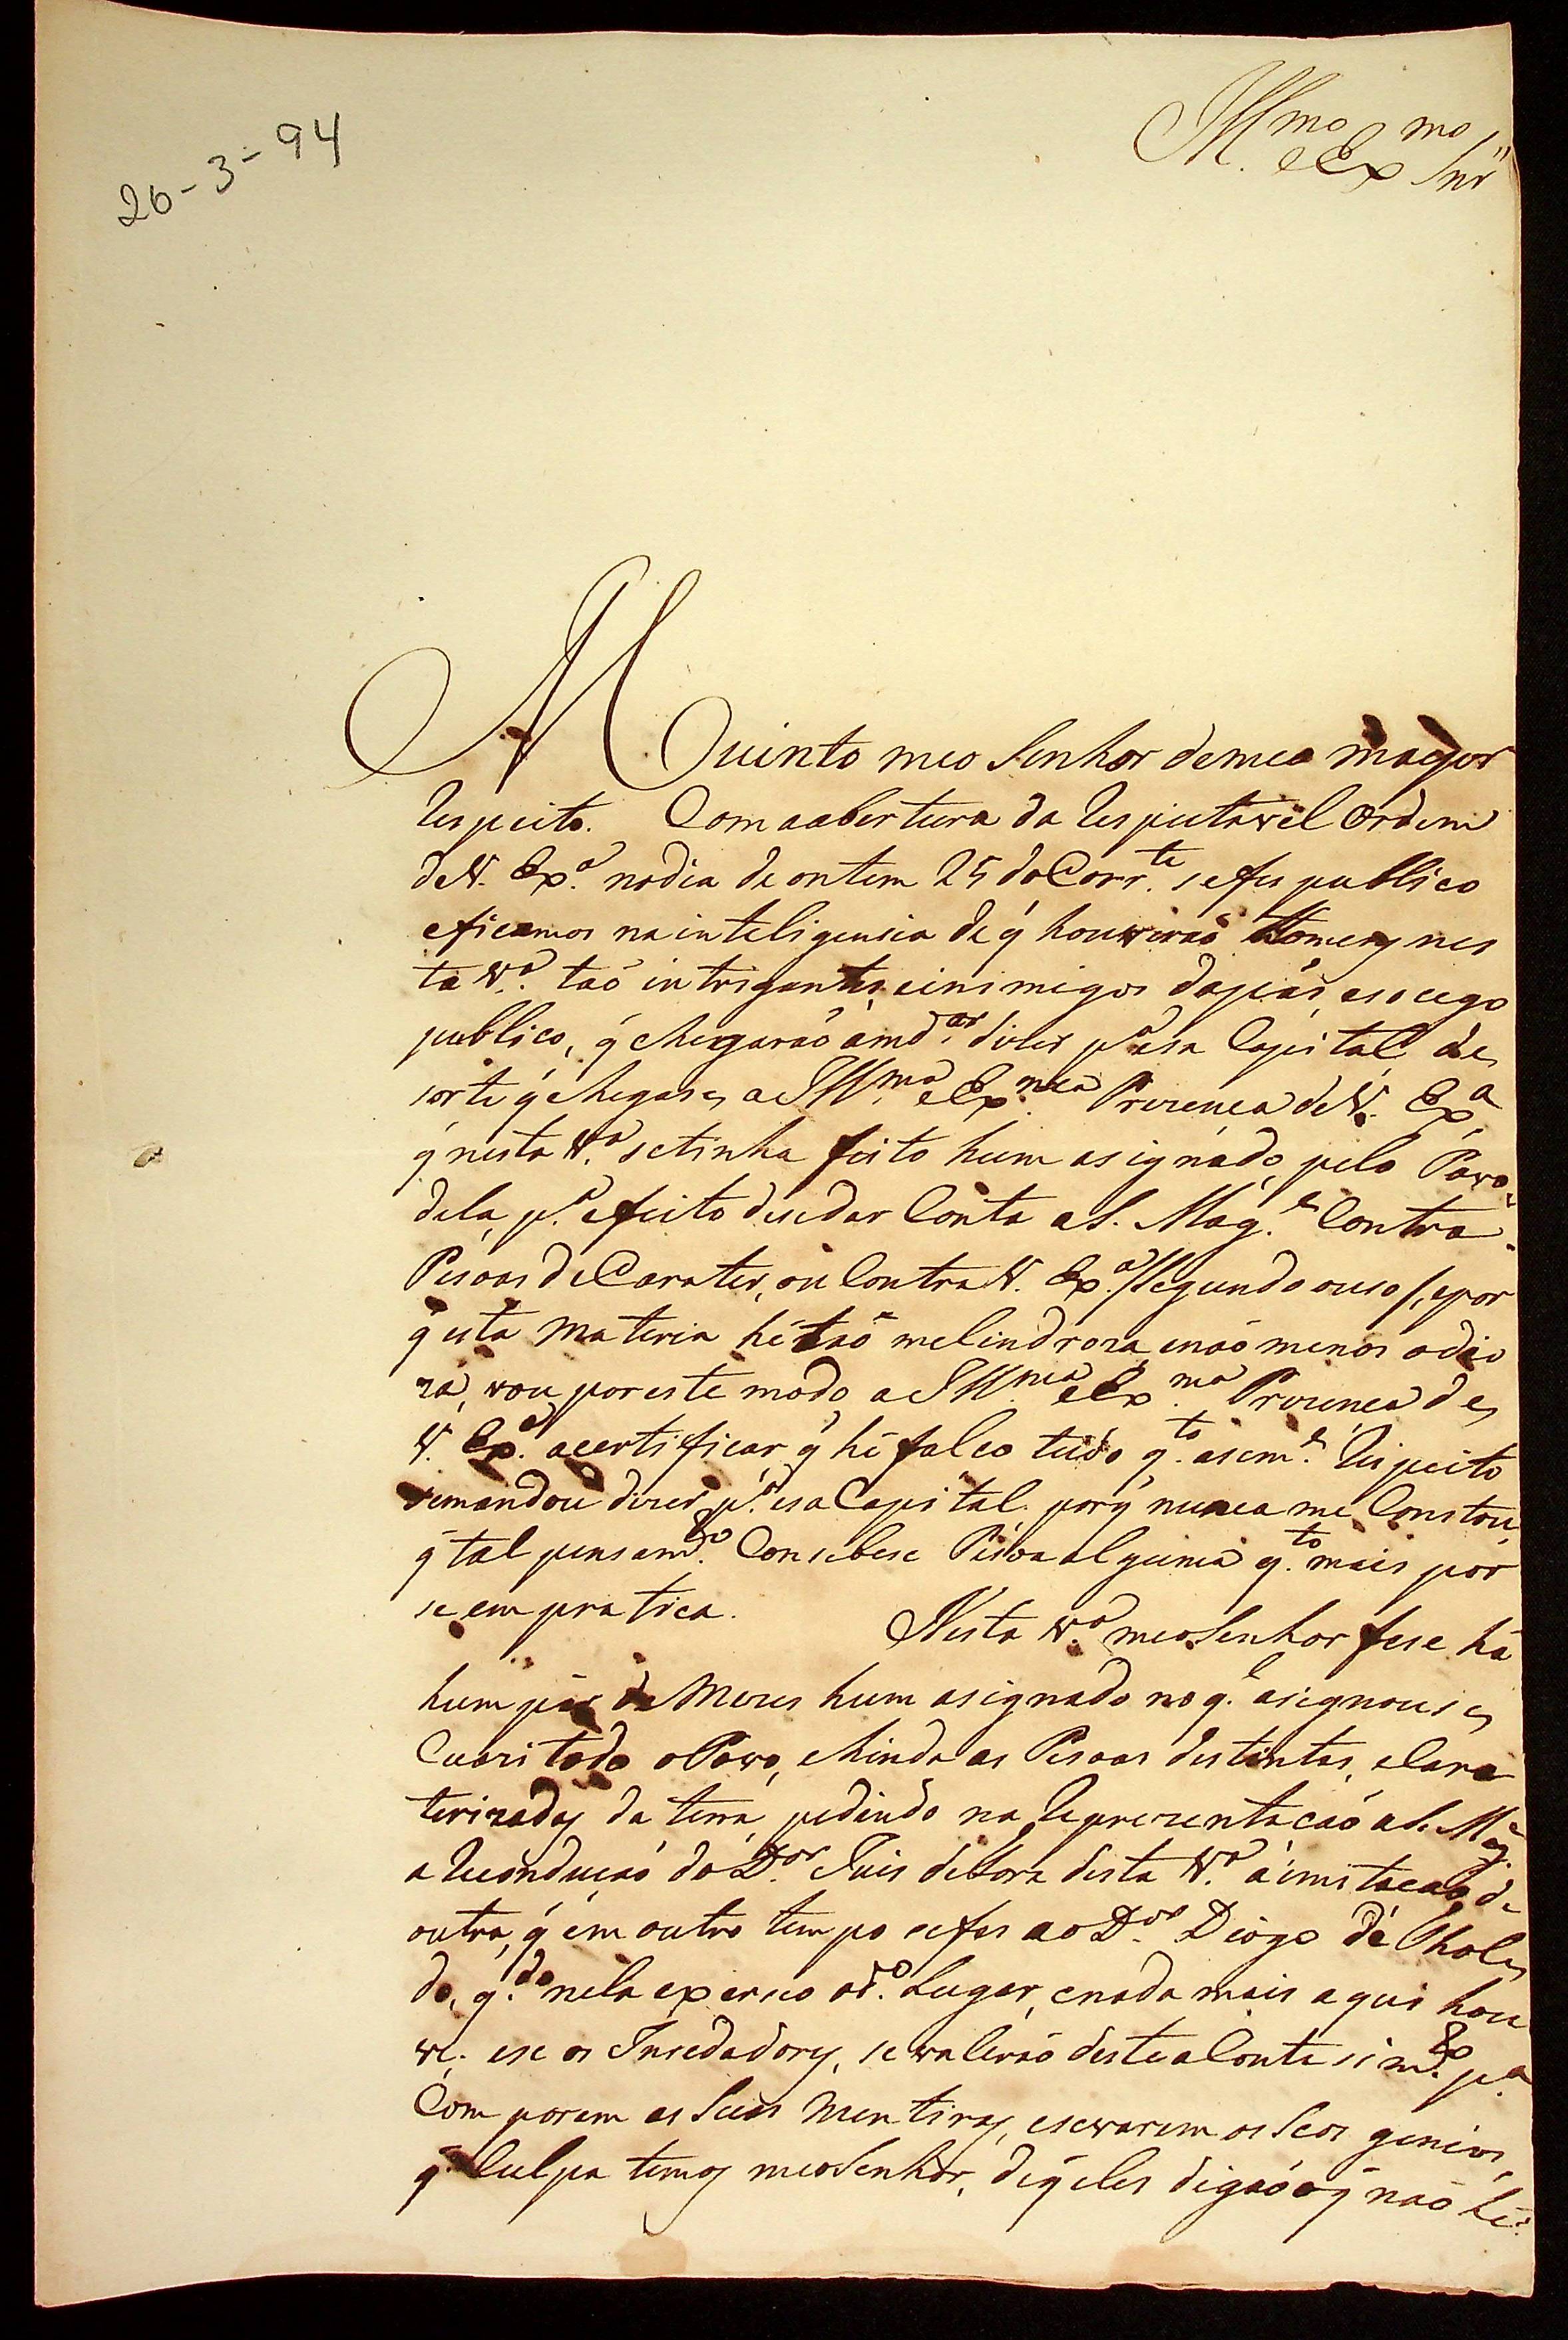 26-3-94
Illmo e Exmo Snr"
Muinto meo Senhor de meo mayor
Respeito. Com a abertura da Respeitavel Ordem
de V. Exª. no dia de ontem 25 do Corrte. se fes publico
e ficamos na inteligensia de q̃ houverão Homens nes
ta Vª. tão intrigantes, e inimigos da pás, e socego
publico, q̃ chegarão a mdar. dizer pª esa Capital de
sorte q̃ chegase a Illma. e Exma. Prezenca de V. Exª
q̃ nesta Vª. se tinha feito hum asignado pelo Povo
dela, pª. efeito de se dar Conta a S. Mage. Contra
Pesoas de Carater, ou Contra V. Exª./segundo ouso/, e por
q̃ esta materia hé tão melindroza, e não menos odio
za, vou por este modo a Illma. e Exma. Prezenca de
V. Exª. a certificar q̃ hé falco tudo qto. a seme. Respeito
se mandou dizer pª. esa Capital. porq̃ nunca me Constou,
q̃ tal pensamto. Consebese Pesoa alguma qto. mais por
se em pratica. Nesta Vª. meo Senhor fese há
hum pár de Mezes hum asignado no ql. asignouse
Cuazi todo o Povo, e hinda as Pesoas destintas, e Cara
terizadas da terra, pedindo na Reprezentacaó a S. Mage.
a Reconducaó do Dor. Juis de Fora desta Vª. á imitacaó de
outra, q̃ em outro tempo se fes ao Dor. Diogo de Thole
do, qdo. nela exerseo o do. Lugar, e nada mais aqui hou
ve. e se os Inredadores, se valerão deste a Contesimto. pª.
Comporem as Suas Mentiras, e sevarem os Seos genios,
q̃ Culpa temos meo Senhor, de q̃ eles digaó o q̃ naó hé?